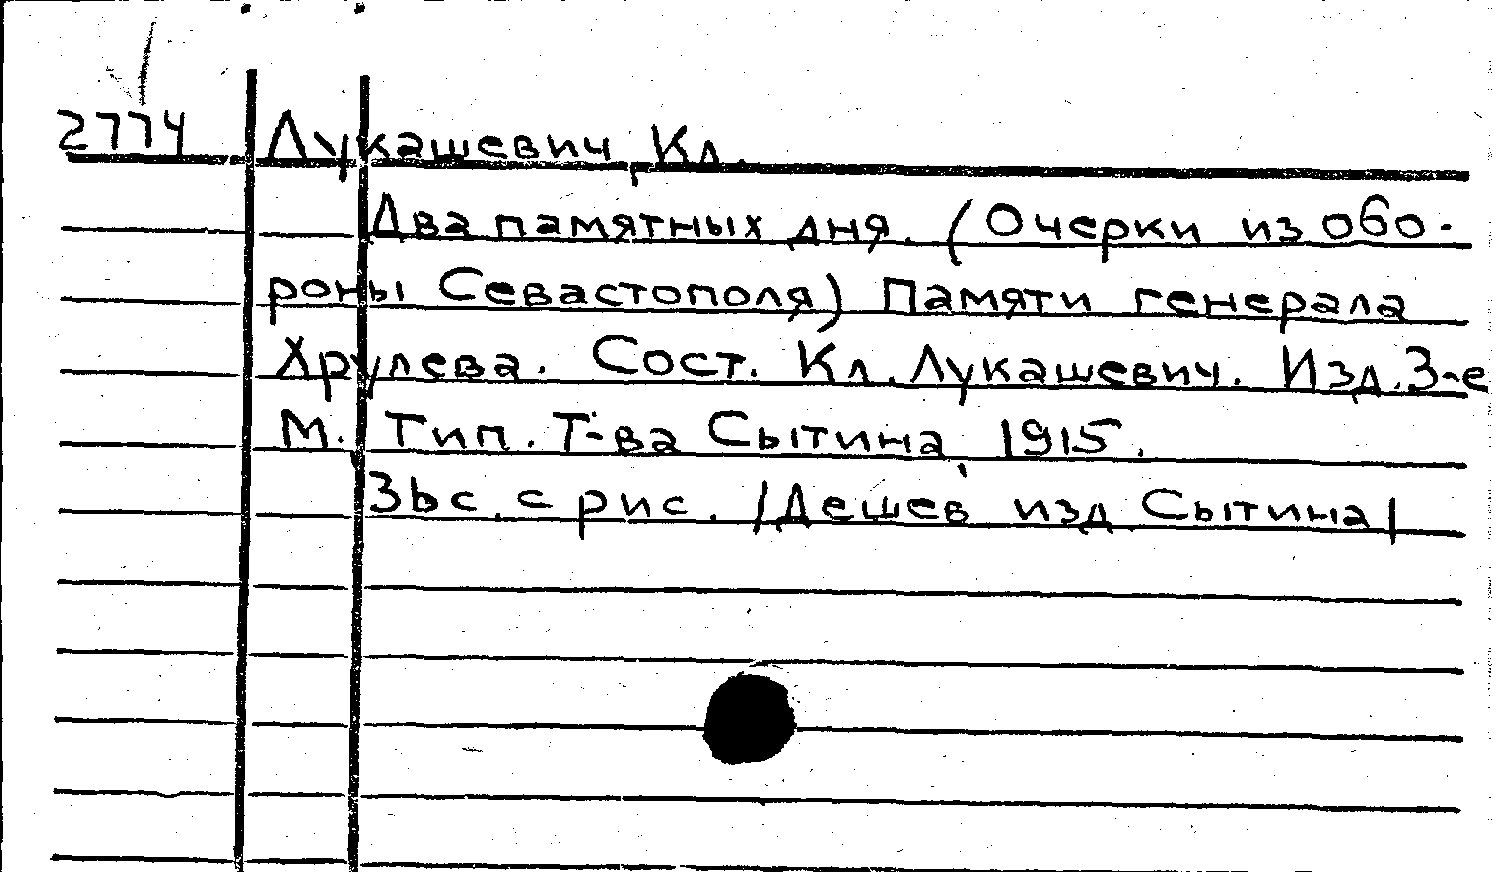 2774 Лукашевич, Кл.
Два памятных дня. (Очерки из обо-
роны Севастополя) Памяти генерала
Хрулева. Сост. Кл. Лукашевич. Изд. 3-е
М. Тип. Т-ва Сытина, 1915.
36с. с рис. /Дешев изд Сытина/